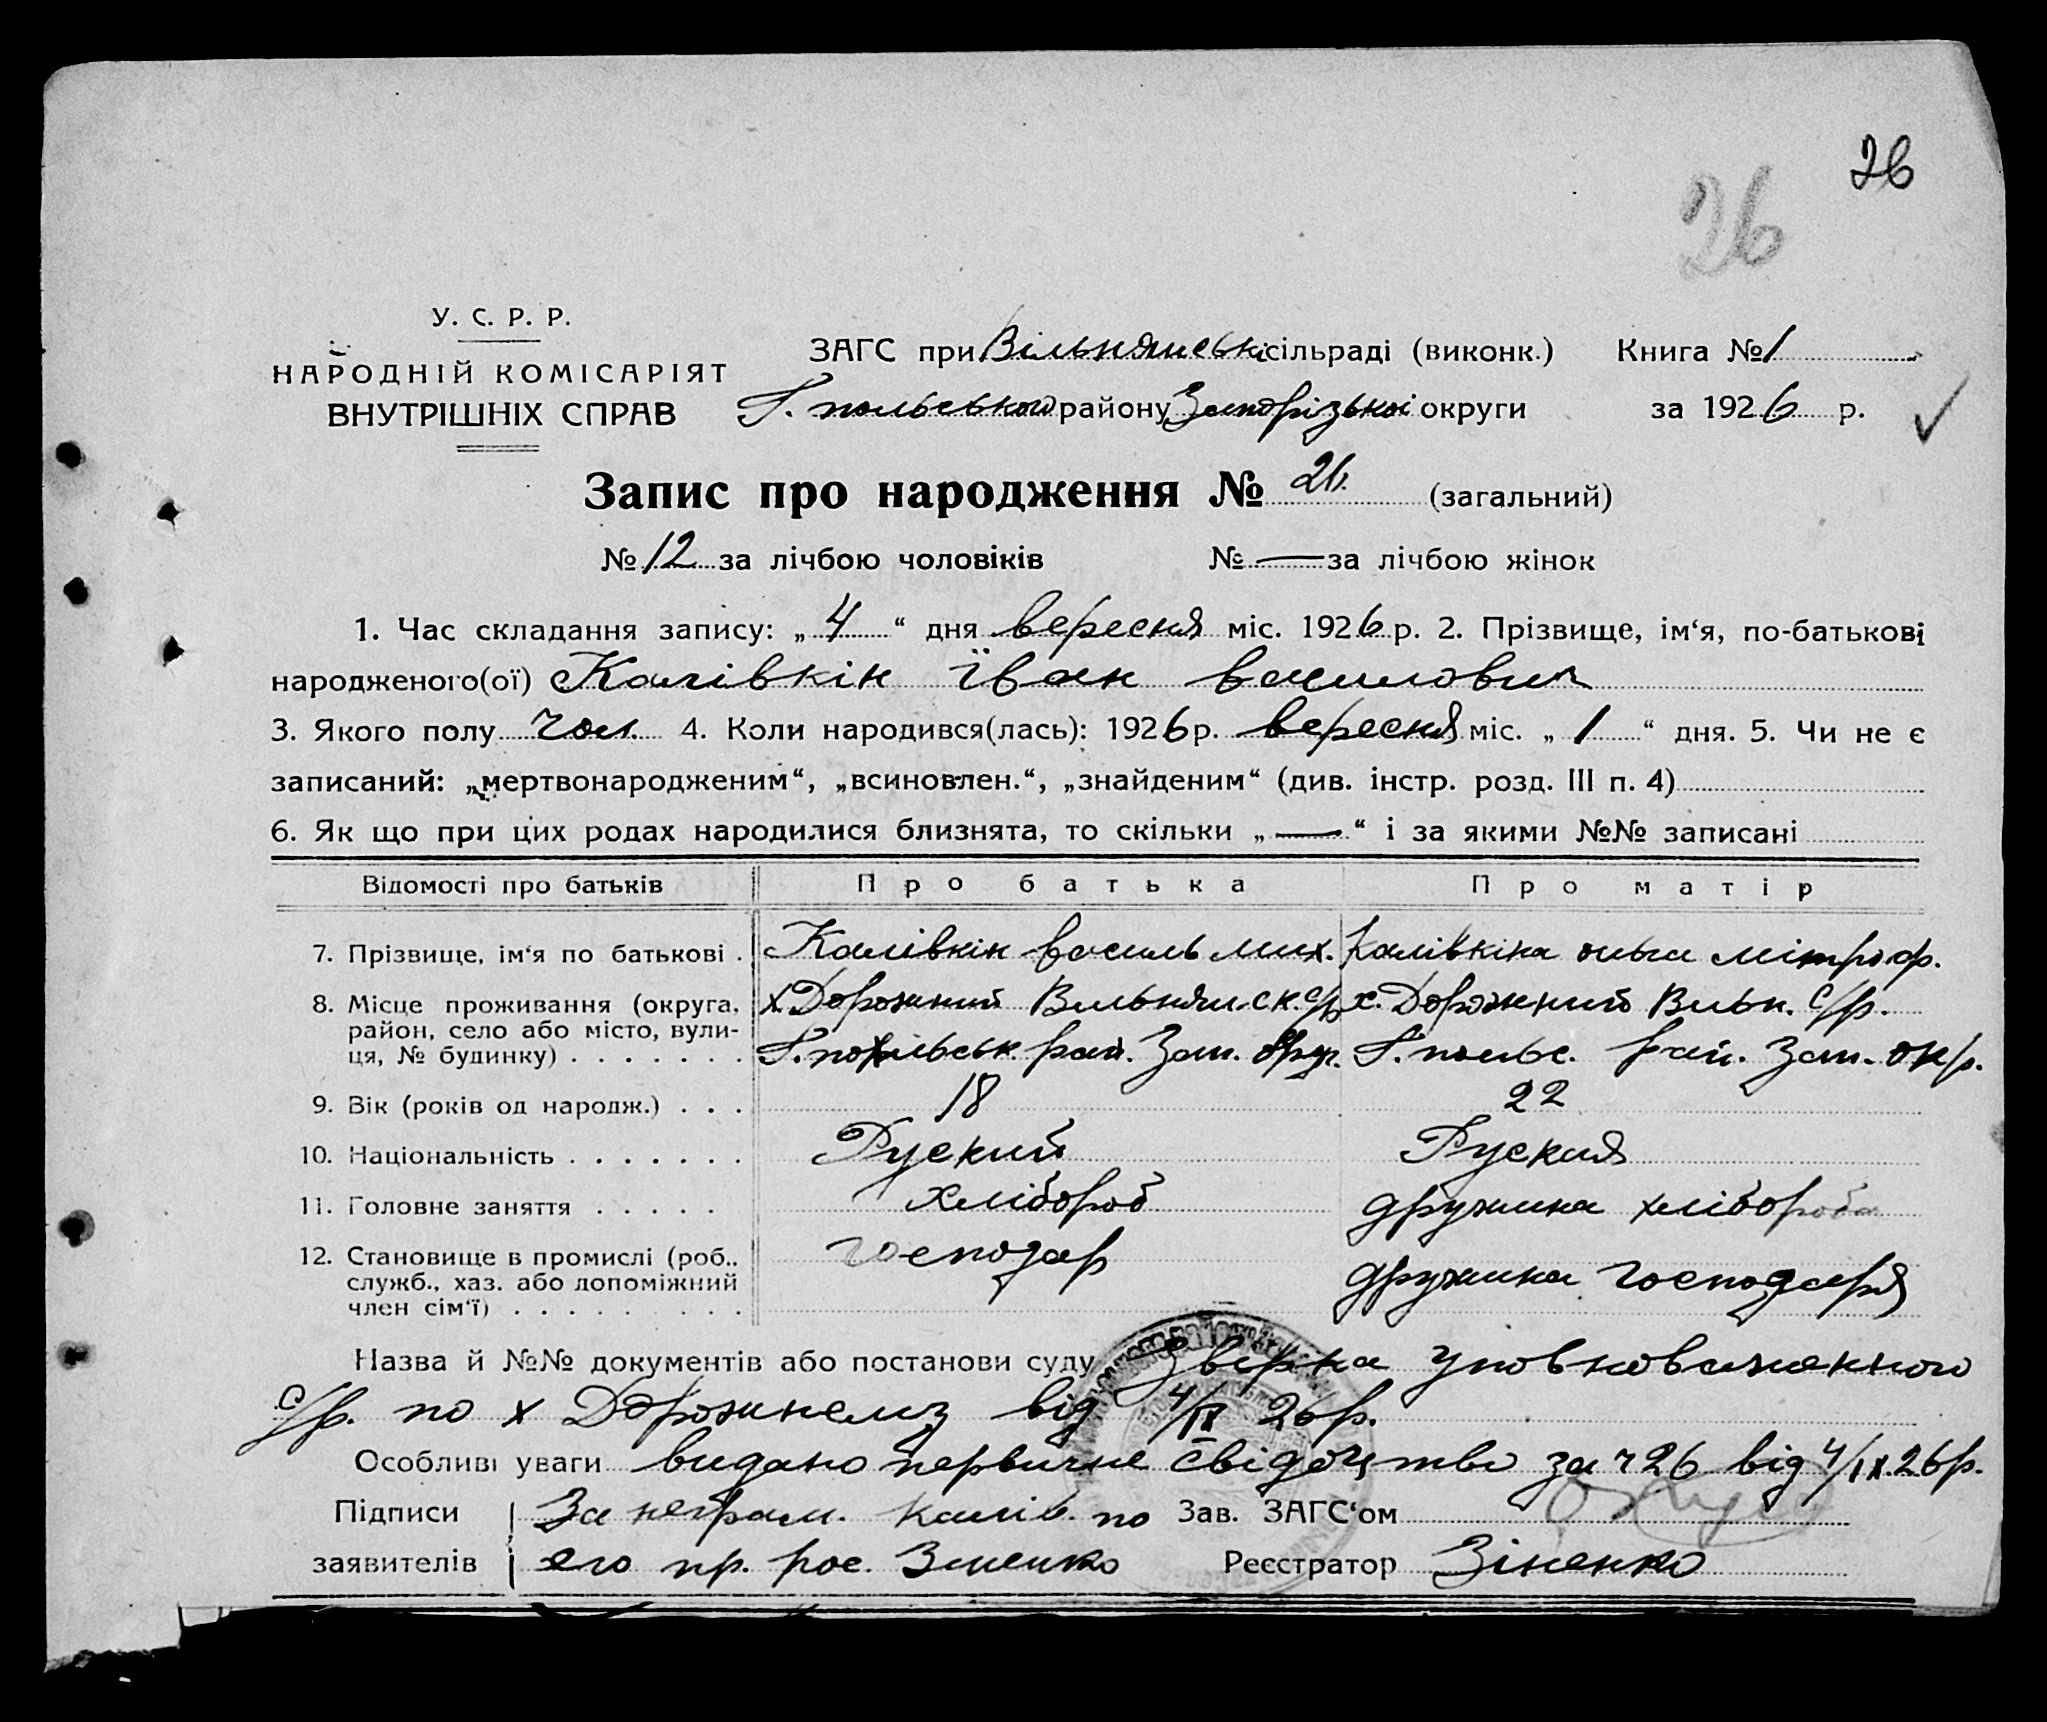 26
26
У. С. Р. Р.
НАРОДНІЙ КОМІСАРІЯТ
ВНУТРІШНІХ СПРАВ
ЗАГС при Вільнянській сільраді (виконк.) Книга № 1
Г. польського району Запорізької округи за 1926 р.
Запис про народження № 26. (загальний)
№ 12 за лічбою чоловіків № — за лічбою жінок
1. Час складання запису: „4“ дня вересня міс. 1926 р. 2. Прізвище, ім‘я, по-батькові
народженого(ої) Калівкін Їван василович
3. Якого полу чол. 4. Коли народився(лась): 1926 р. вересня міс. „1“ дня. 5. Чи не є
записаний: „мертвонародженим“, „всиновлен.“, „знайденим“ (див. інстр. розд. III п. 4)
6. Як що при цих родах народилися близнята, то скільки „—“ і за якими №№ записані
Відомості про батьків Про батька Про матір
7. Прізвище, ім‘я по батькові . Калівкін василь мих. Калівкіна ольга мітроф.
8. Місце проживання (округа, х. Дорожний Вильнян.ск. с/р х. Дорожний Вильн. с/р.
район, село або місто, вули-
ця, № будинку) . . . . . . . Г. попільськ. рай. Зап. окр. Г. польс. рай. Зап. окр.
9. Вік (років од народж.) . . . 18 22
10. Національність . . . . . . . Руский Руския
11. Головне заняття . . . . . хлібороб дружина хлібороба
12. Становище в промислі (роб.. господар дружина господаря
служб., хаз. або допоміжний
член сім‘ї) . . . . . . . . .
Назва й №№ документів або постанови суду Звірка уповноваженного
с/р. по х Дорожнему від 4/IX 26 р.
Особливі уваги видано первичне свідоцтво за ч 26 від 4/IX.26 р.
Підписи За неграм. калів. по Зав. ЗАГС‘ом
заявителів его пр. рос. Зіненко Реєстратор Зіненко